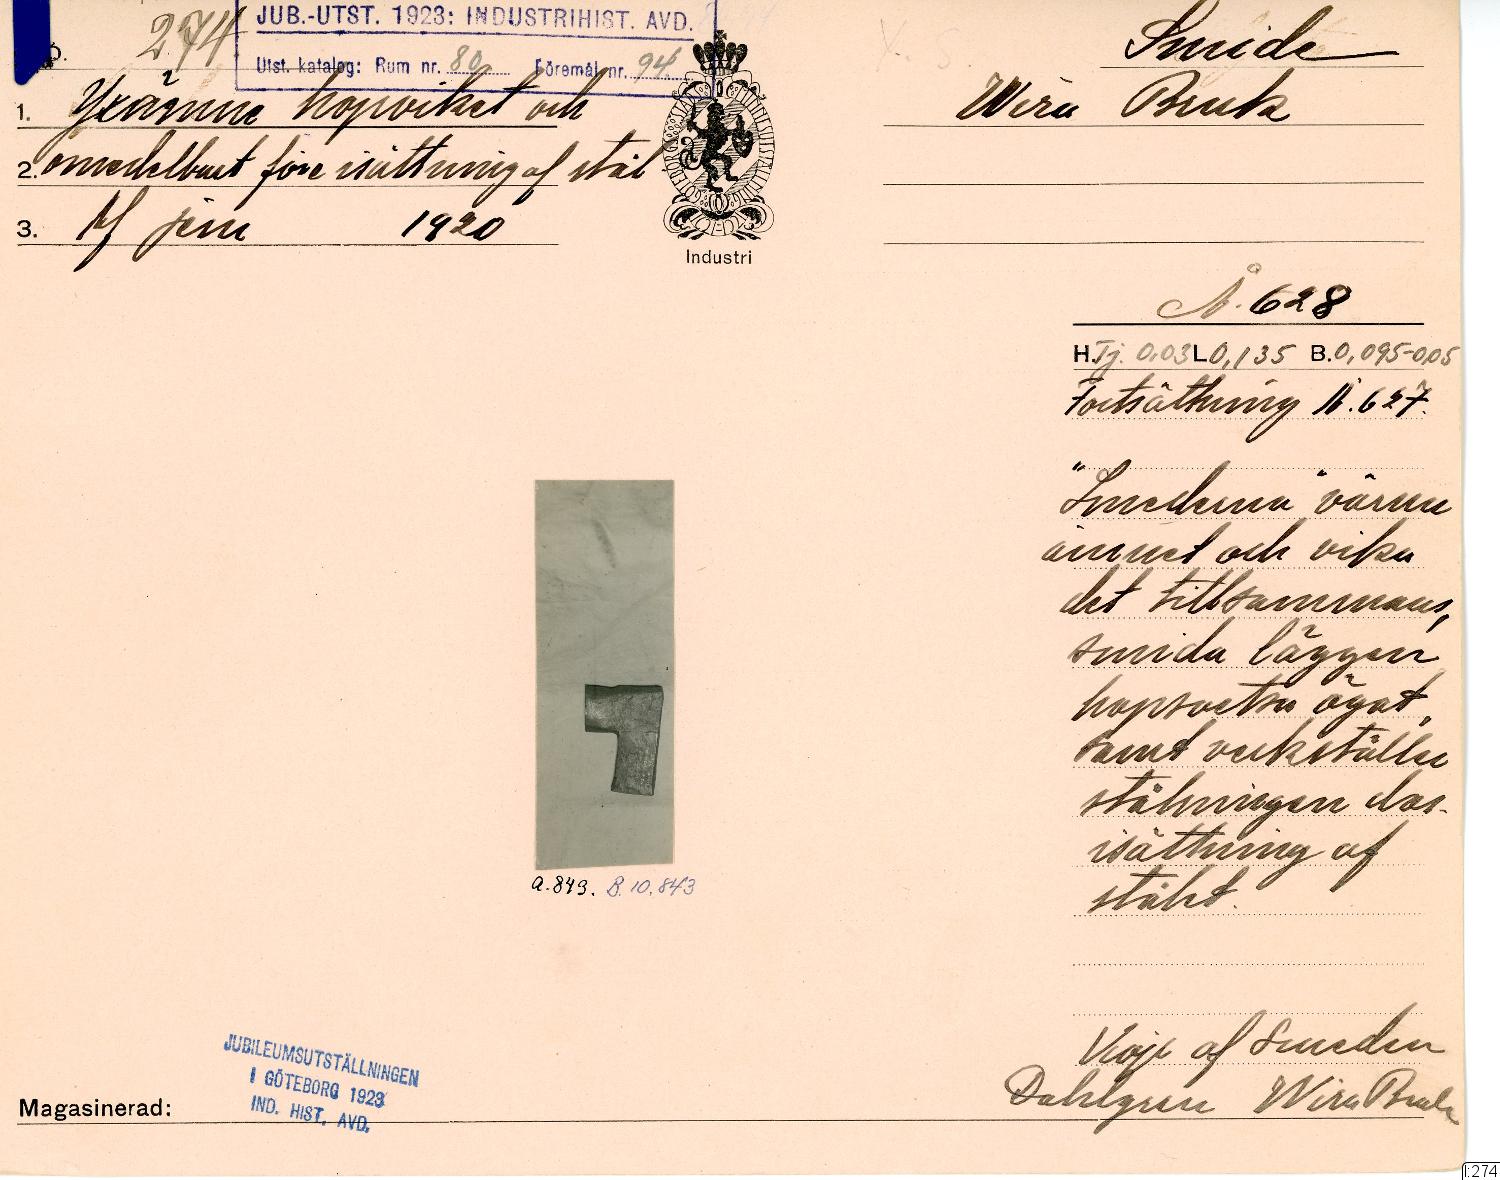 274
JUB.-UTST. 1923: INDUSTRIHIST. AVD.
Utst. katalog: Rum nr. 80 Föremål nr. 94
1. Yxämne hopviket och
2. omedelbart före isättning af stål
3. Af jern 1920
Industri
Smide
Wira Bruk
Å. 628
H. Tj. 0,03 L 0,135 B. 0,095-0,05
Fortsättning Å. 627.
"Smederna värma
ämnet och vika
det tillsammans,
smida läggen
hopsvetsa ögat,
samt verkställa
stålningen d.v.s.
isättning af
stålet.
A. 849. B. 10,843
af Smeden
Dahlgren Wira Bruk
JUBILEUMSUTSTÄLLNINGEN
I GÖTEBORG 1923
IND. HIST. AVD.
Magasinerad:
I:274